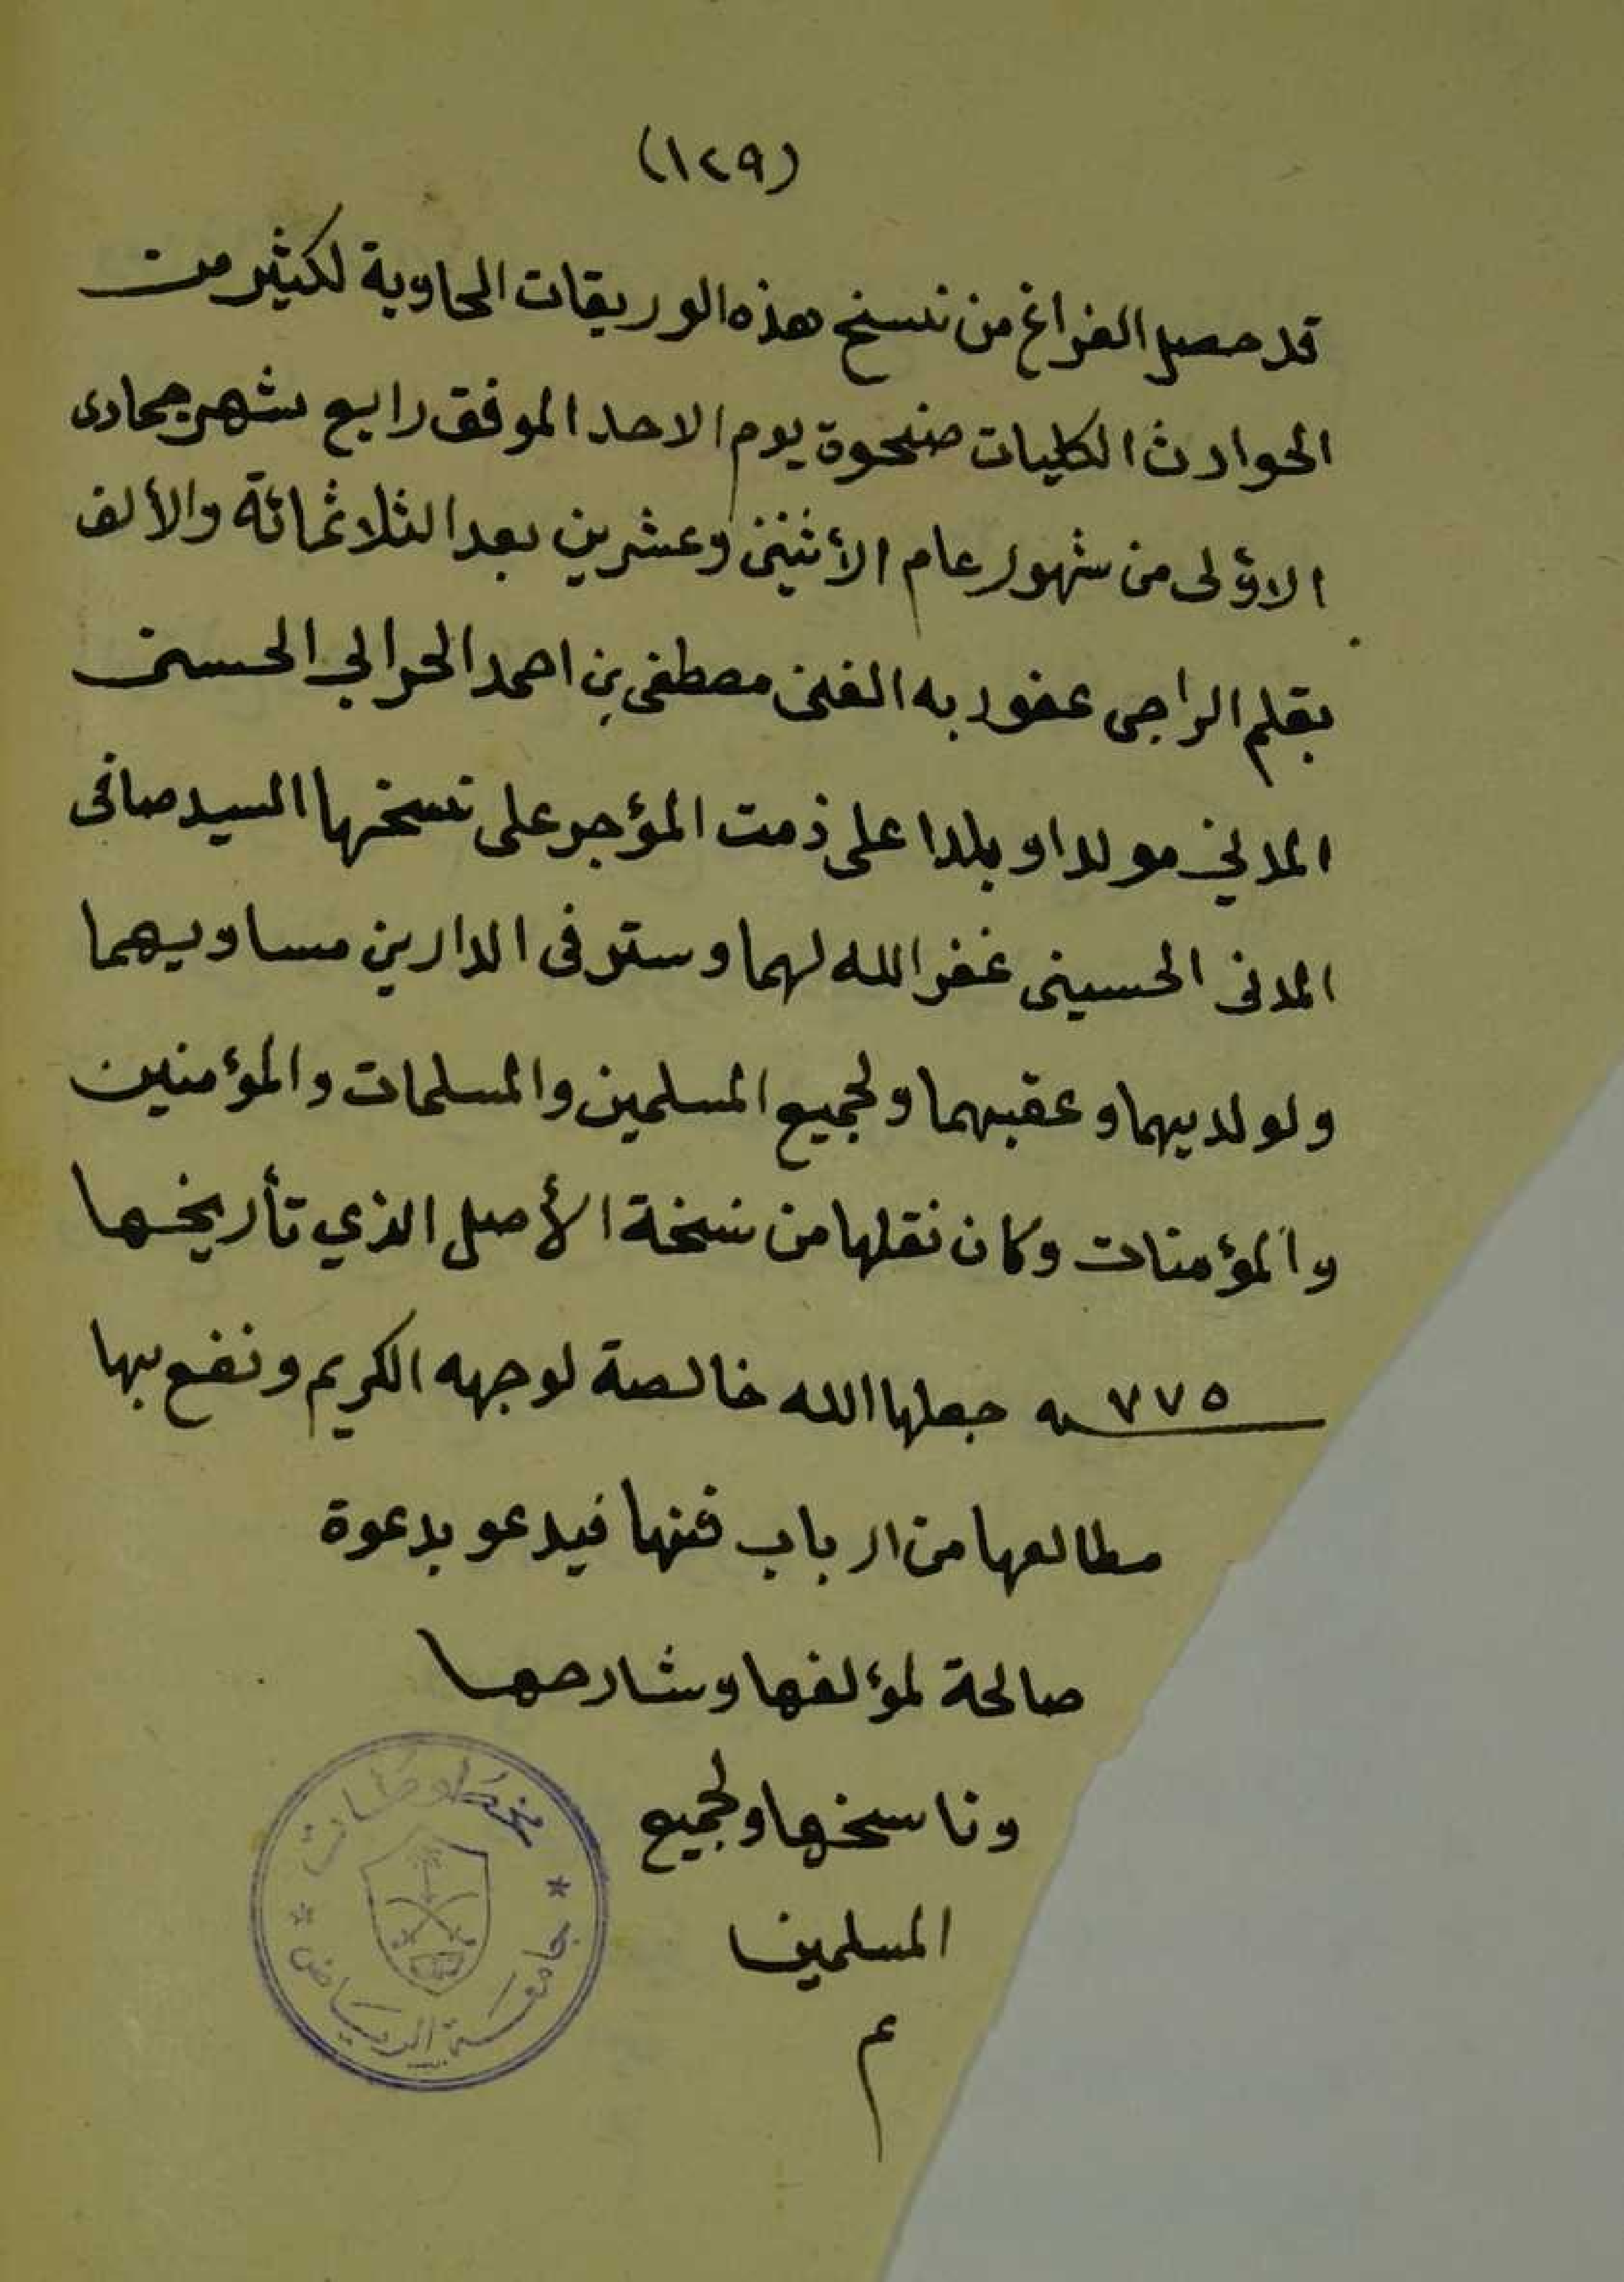 (١٢٩)
قد حصل الفراغ من نسخ هذه الوريقات الحاوية لكثير من
الحوادث الكليات ضحوة يوم الاحد الموفق رابع شهر جمادى
الاولى من شهور عام الأثنين وعشرين بعد الثلاثمائة والألف
بقلم الراجى عفو ربه الغنى مصطفى بن احمد الحوالي الحسنى
المدني مولدا وبلدا على ذمت المؤجر على نسخها السيد صافى
المدنى الحسينى غفر الله لهما وستر فى الدارين مساويهما
ولولديهما وعقبهما ولجميع المسلمين والمسلمات والمؤمنين
والمؤمنات وكان نقلها من نسخة الأصل الذي تأريخها
٧٧٥ سنه جعلها الله خالصة لوجهه الكريم ونفع بها
مطالعها من ارباب فنها فيدعو بدعوة
صالحة لمؤلفها وشارحها
وناسخها ولجميع
المسلمين
م
مخطوطات
جامعة الرياض